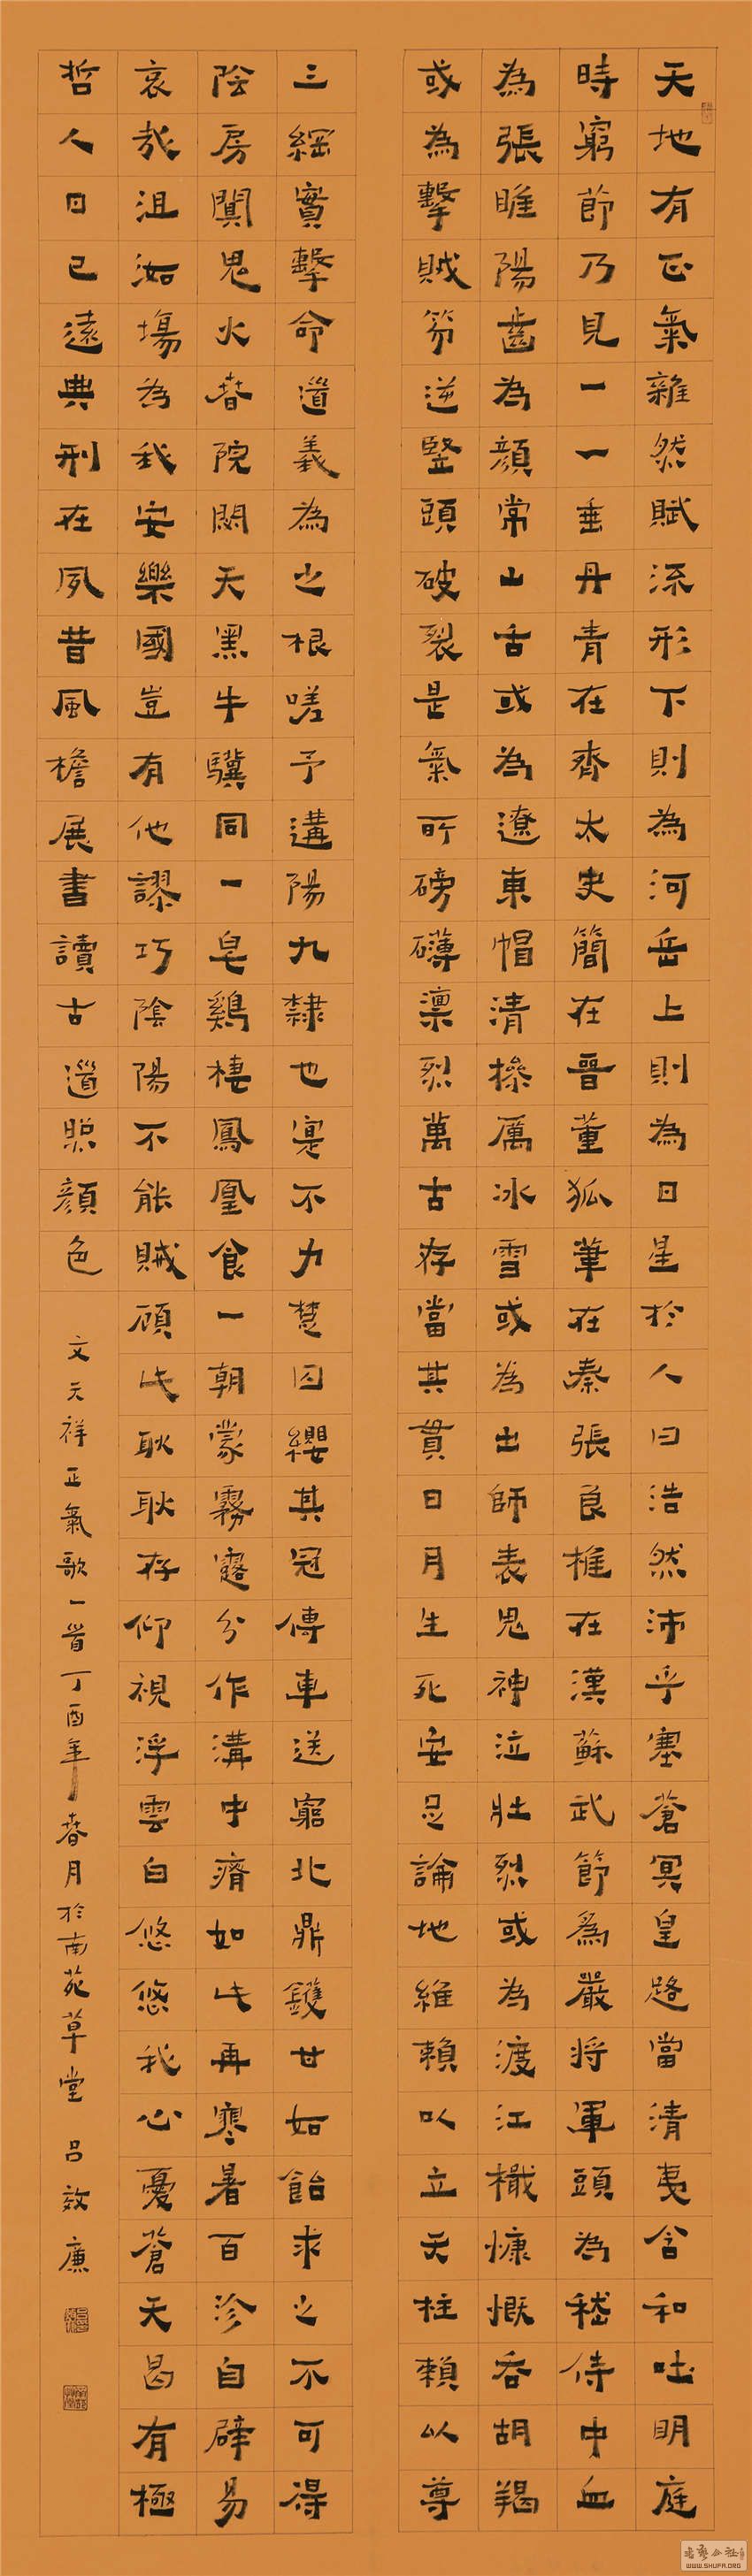 天地有正氣雜然賦流形下則為河岳上則為日星於人曰浩然沛乎塞蒼冥皇路當清夷含和吐明庭
時窮節乃見一一垂丹青在齊太史簡在晉董狐筆在秦張良椎在漢蘇武節為嚴將軍頭為嵇侍中血
為張睢陽齒為顏常山舌或為遼東帽清操厲冰雪或為出師表鬼神泣壯烈或為渡江檝慷慨吞胡羯
或為擊賊笏逆豎頭破裂是氣所磅礴凜烈萬古存當其貫日月生死安足論地維賴以立天柱賴以尊
三綱實擊命道義為之根嗟予遘陽九隸也寔不力楚囚纓其冠傳車送窮北鼎鑊甘如飴求之不可得
陰房闃鬼火春院閟天黑牛驥同一皂鷄棲鳳凰食一朝蒙霧露分作溝中瘠如此再寒暑百沴自辟易
哀哉沮洳場為我安樂國豈有他謬巧陰陽不能賊顧此耿耿存仰視浮雲白悠悠我心憂蒼天曷有極
哲人日已遠典刑在夙昔風檐展書讀古道照顏色
文天祥正氣歌一首丁酉年春月於南苑草堂 呂效廉
WWW.SHUFA.ORG